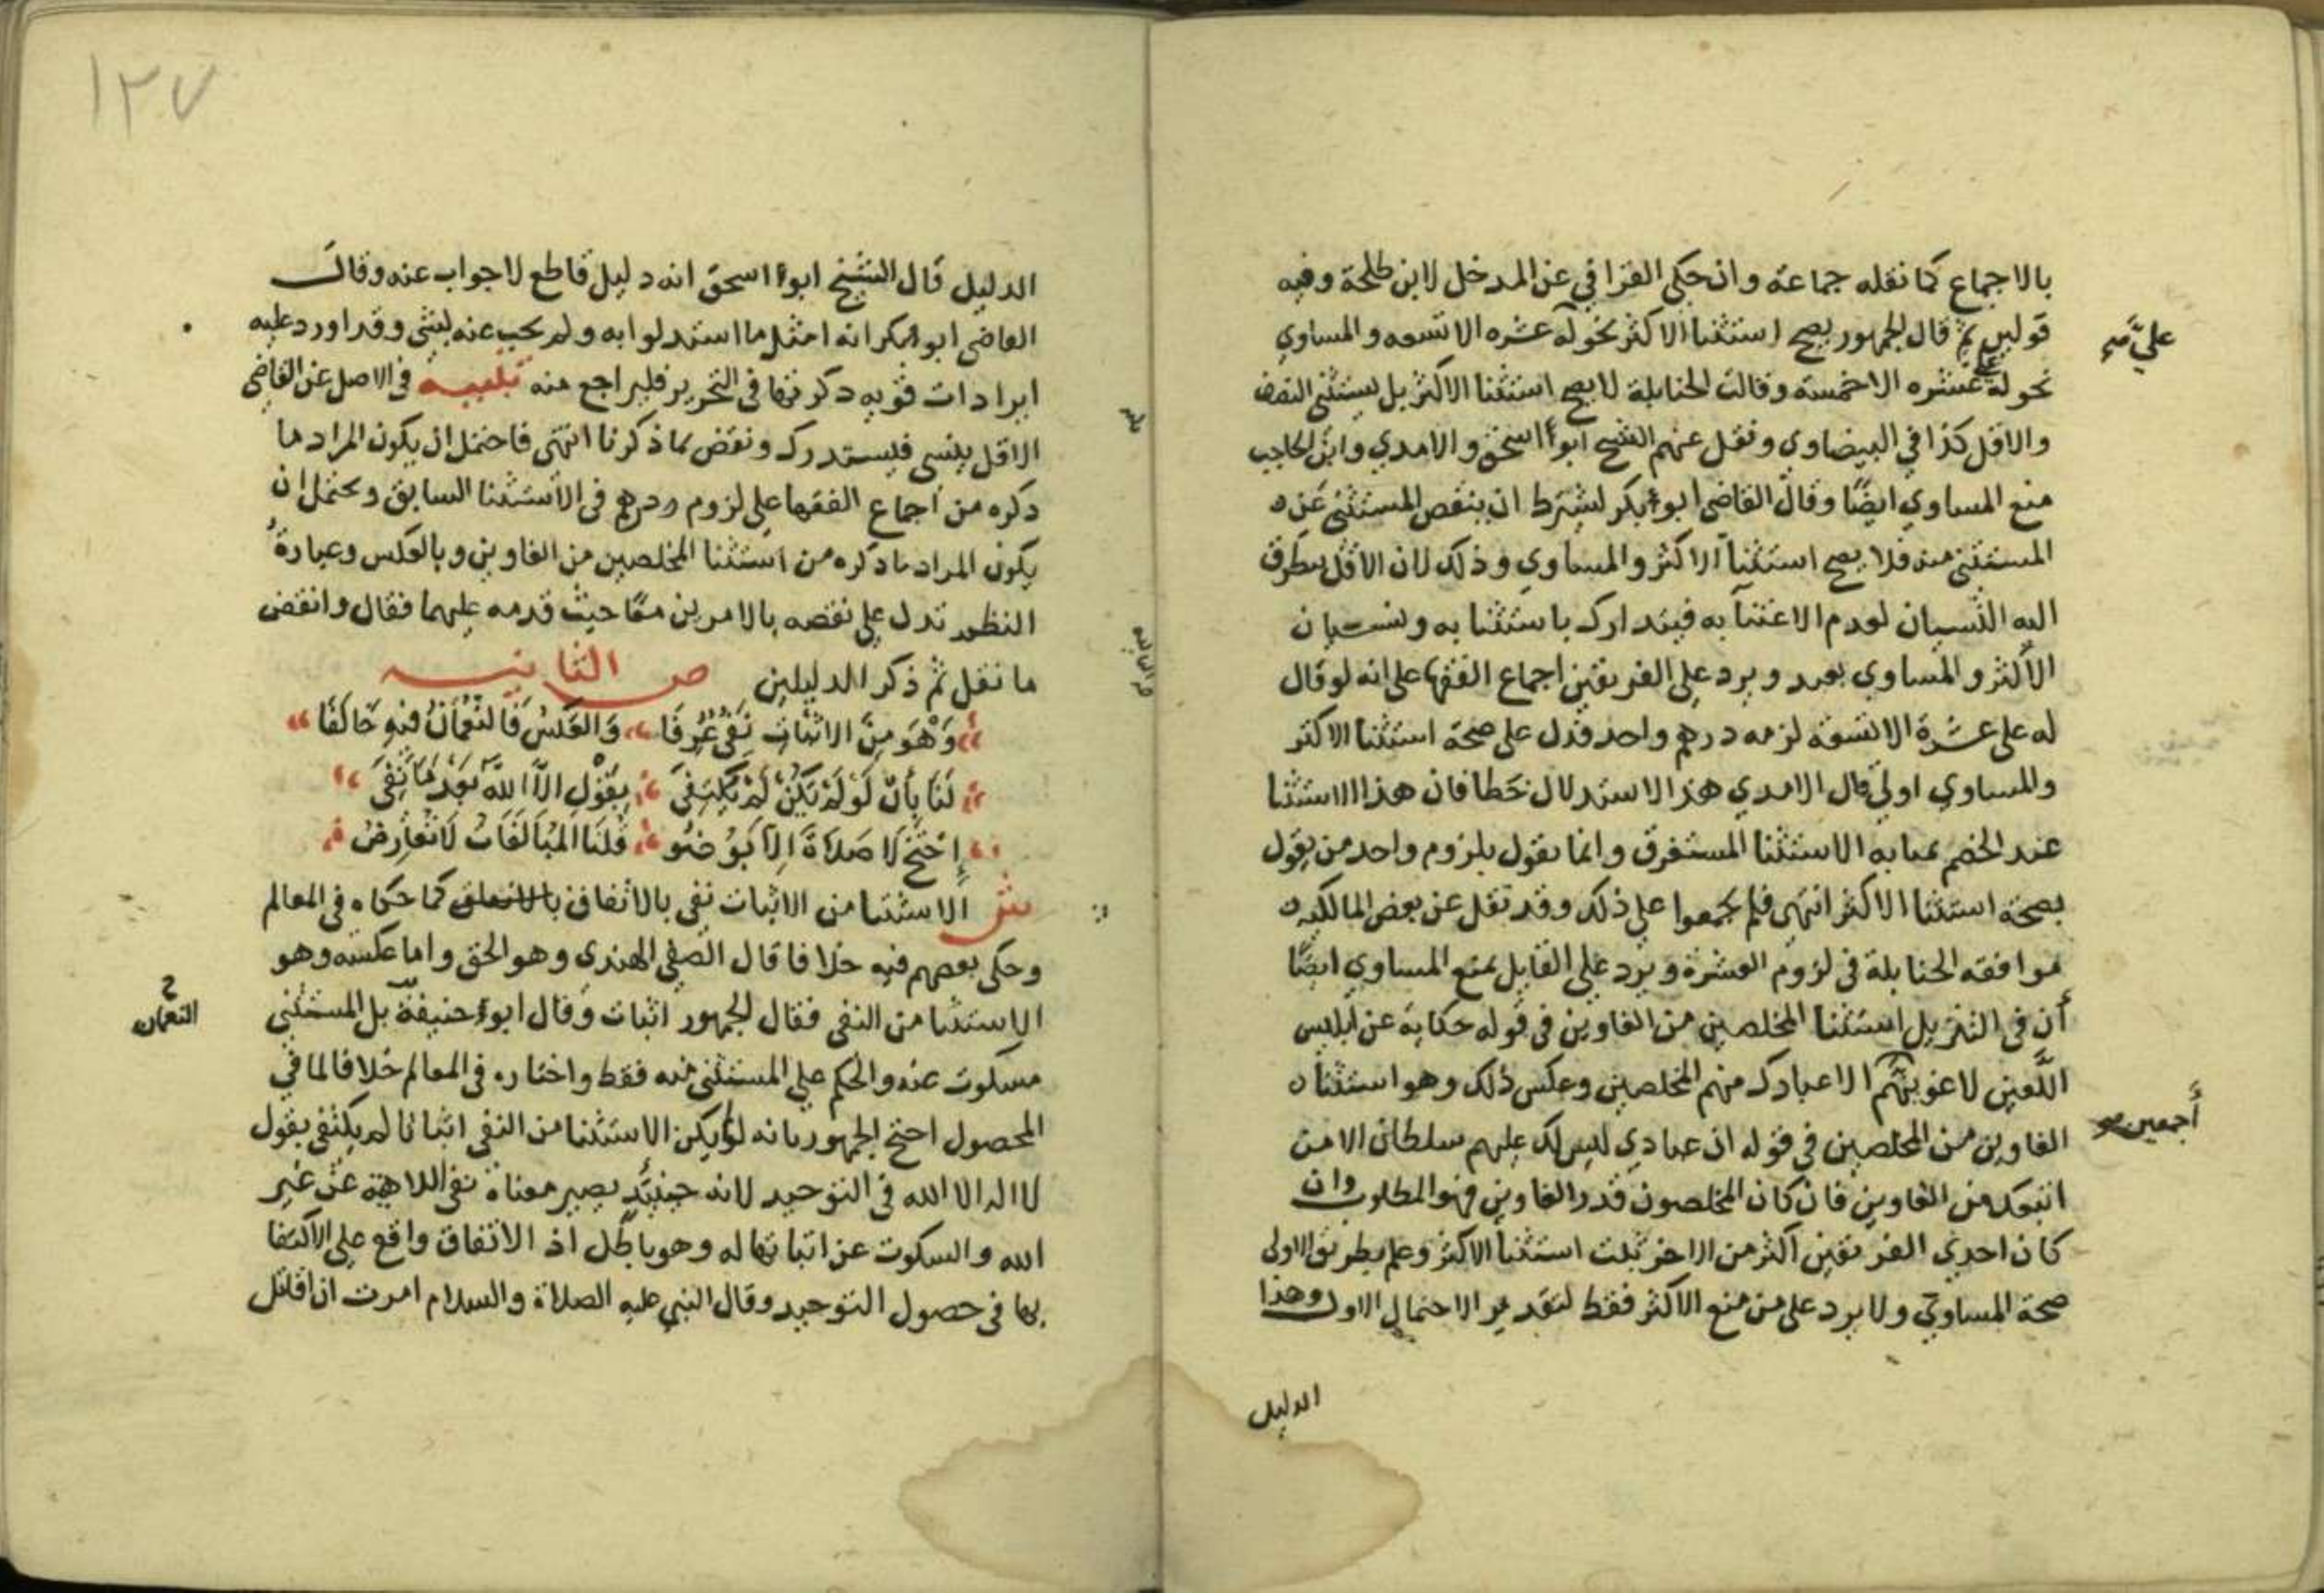 بالاجماع كما نقله جماعة وان حكى القرافي عن المدخل لابن طلحة وفيه
قولين ثم قال الجمهور يصح استثنا الاكثر نحو له عشره الا تسعه والمساوي
عليَّ صح
نحو له علي عشره الا خمسة وقالت الحنابلة لا يصح استثنا الاكثر بل يستثنى النصف
والاقل كذا في البيضاوي ونقل عنهم الشيخ ابو اسحق والامدي وابن الحاجب
منع المساوي ايضًا وقال القاضي ابو بكر يشترط ان ينقص المستثنى عن
المستثنى منه فلا يصح استثنا الاكثر والمساوي وذلك لان الاقل يطرق
اليه النسيان لعدم الاعتنا به فيتدارك باستثنا به ونسيان
الاكثر والمساوي بعيد ويرد على الفريقين اجماع الفقها على انه لو قال
له على عشرة الا تسعة لزمه درهم واحد فدل على صحة استثنا الاكثر
والمساوي اولى قال الامدي هذا الاستدلال خطا فان هذا الاستثنا
عند الخصم بمثابه الاستثنا المستغرق وانما يقول بلزوم واحد من يقول
بصحة استثنا الاكثر انتهى فلم يجمعوا على ذلك وقد نقل عن بعض المالكيه
موافقه الحنابلة في لزوم العشرة ويرد على القايل بمنع المساوي ايضًا
أن في التنزيل استثنا المخلصين من الغاوين في قوله حكاية عن ابليس
اللَّعين لاغوينهم الا عبادك منهم المخلصين وعكس ذلك وهو استثنا
أجمعين صح
الغاوين من المخلصين في قوله ان عبادي ليس لك عليهم سلطان الا من
اتبعك من الغاوين فان كان المخلصون قدر الغاوين فهو المطلوب وان
كان احدي الفريقين اكثر من الاخر ثبت استثنا الاكثر وعلم بطريق الاولى
صحة المساوي ولا يرد على من منع الاكثر فقط لتقدير الاحتمال الاول وهذا
الدليل
١٢٧
الدليل قال الشيخ ابو اسحق انه دليل قاطع لا جواب عنه وقال
القاضي ابو بكر انه امثل ما استدلوا به ولم يجب عنه بشي وقد اورد عليه
ايرادات قويه ذكرتها في التحرير فليراجع منه تنبيه في الاصل عن القاضي
الاقل ينسى فيستدرك ونقض بما ذكرنا انتهى فاحتمل ان يكون المراد ما
ذكره من اجماع الفقها على لزوم درهم في الاستثنا السابق ويحتمل ان
يكون المراد ما ذكره من استثنا المخلصين من الغاوين وبالعكس وعبارة
النظم تدل على نقضه بالامرين معًا حيث قدمه عليهما فقال وانقض
ما نقل ثم ذكر الدليلين ص الثانيه
وَهْوَ مِنَ الاثبَاتِ نَفيٌ عُرِفَا وَالعَكسُ فَالنُّعْمَانُ فيهِ خَالَفَا
لَنَا بِأَنْ لَوْ لَمْ يَكُنْ لَمْ يُكْتَفَى بِقَوْلِ الاَّ اللهَ بَعْدَ مَا نَفَى
إِحْتَجَّ لَا صَلاَةَ إِلاَّ بَوُضُو قُلنَا المُبَالَغَاتُ لَا تُعَارِضُ
ش الاستثنا من الاثبات نفي بالاتفاق كما حكاه في المعالم
وحكى بعضهم فيه خلافا قال الصفي الهندي وهو الحق واما عكسه وهو
الاستثنا من النفي فقال الجمهور اثبات وقال ابو حنيفة بل المستثنى
النعمان
مسكوت عنه والحكم على المستثنى منه فقط واختاره في المعالم خلافا لما في
المحصول احتج الجمهور بانه لو لم يكن الاستثنا من النفي اثباتا لم يكتفى بقول
لا اله الا الله في التوحيد لانه حينئذ يصير معناه نفي الالاهية عن غير
الله والسكوت عن اثباتها له وهو باطل اذ الاتفاق واقع على الاكتفا
بها في حصول التوحيد وقال النبي عليه الصلاة والسلام امرت ان اقاتل